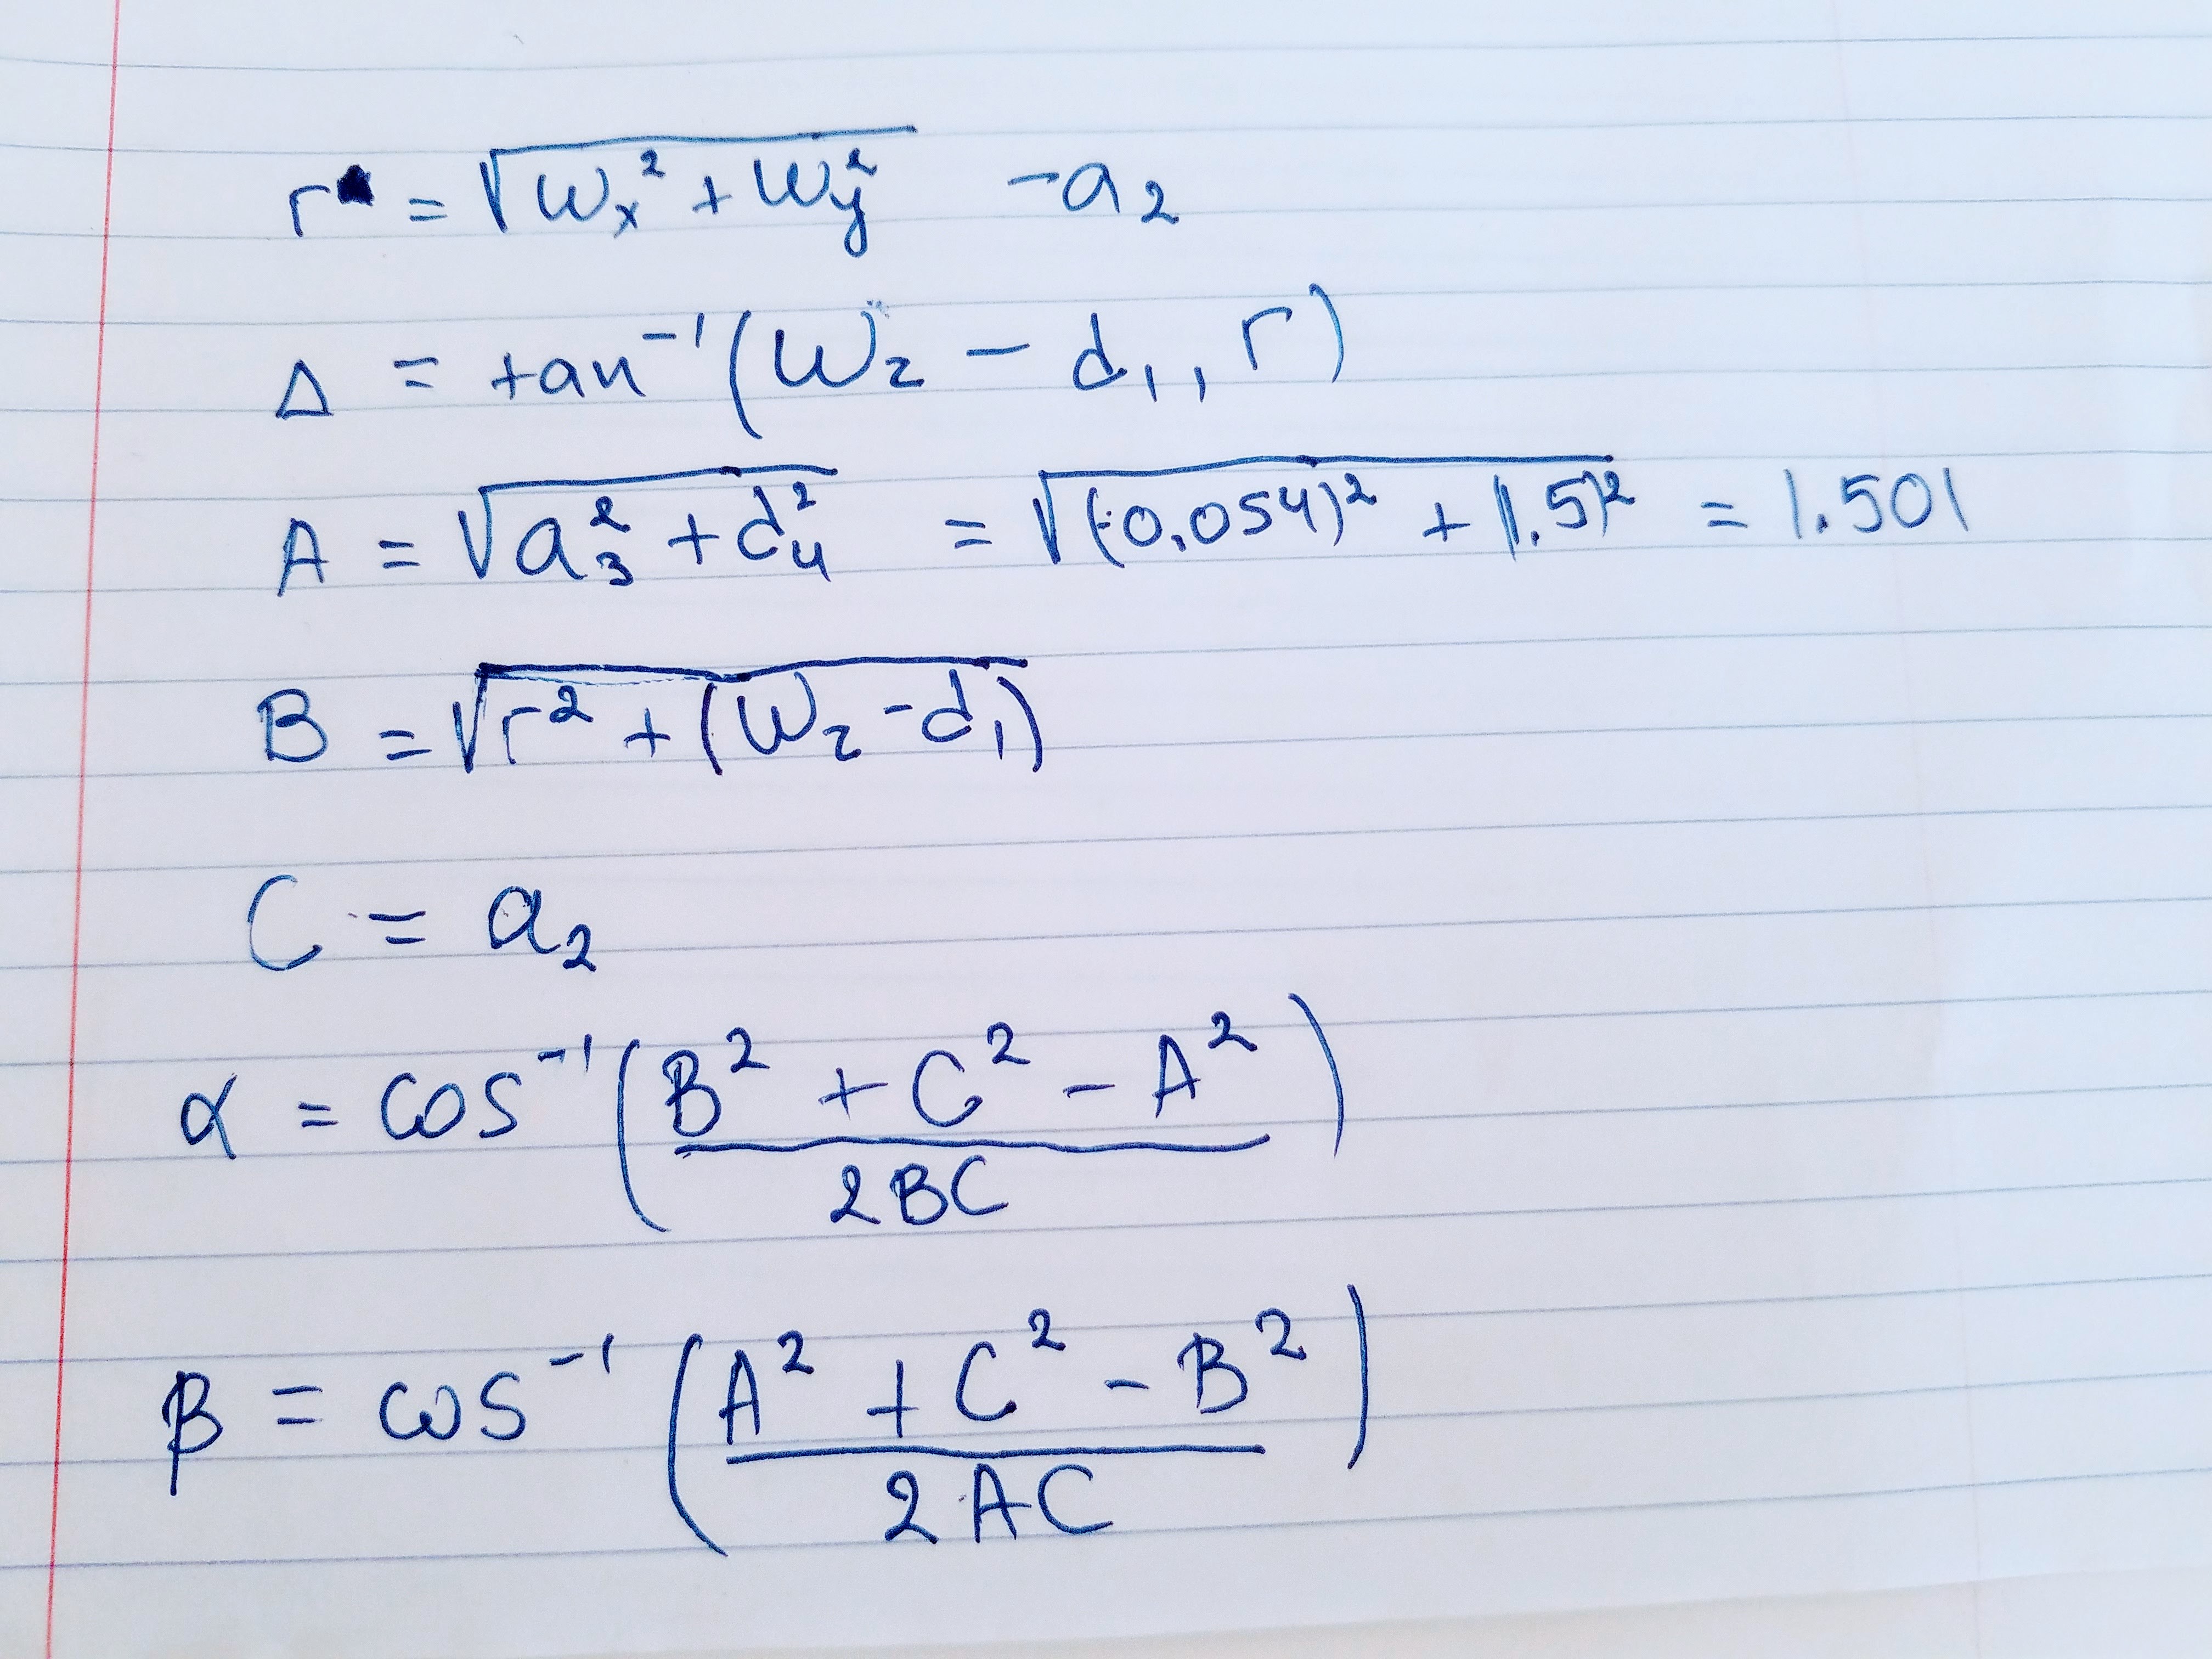 r = √(Wx² + Wy²) - a₂
Δ = tan⁻¹(Wz - d₁, r)
A = √(a₃² + d₄²) = √((-0.054)² + (1.5)²) = 1.501
B = √(r² + (Wz - d₁))
C = a₂
α = cos⁻¹((B² + C² - A²) / 2BC)
β = cos⁻¹((A² + C² - B²) / 2AC)